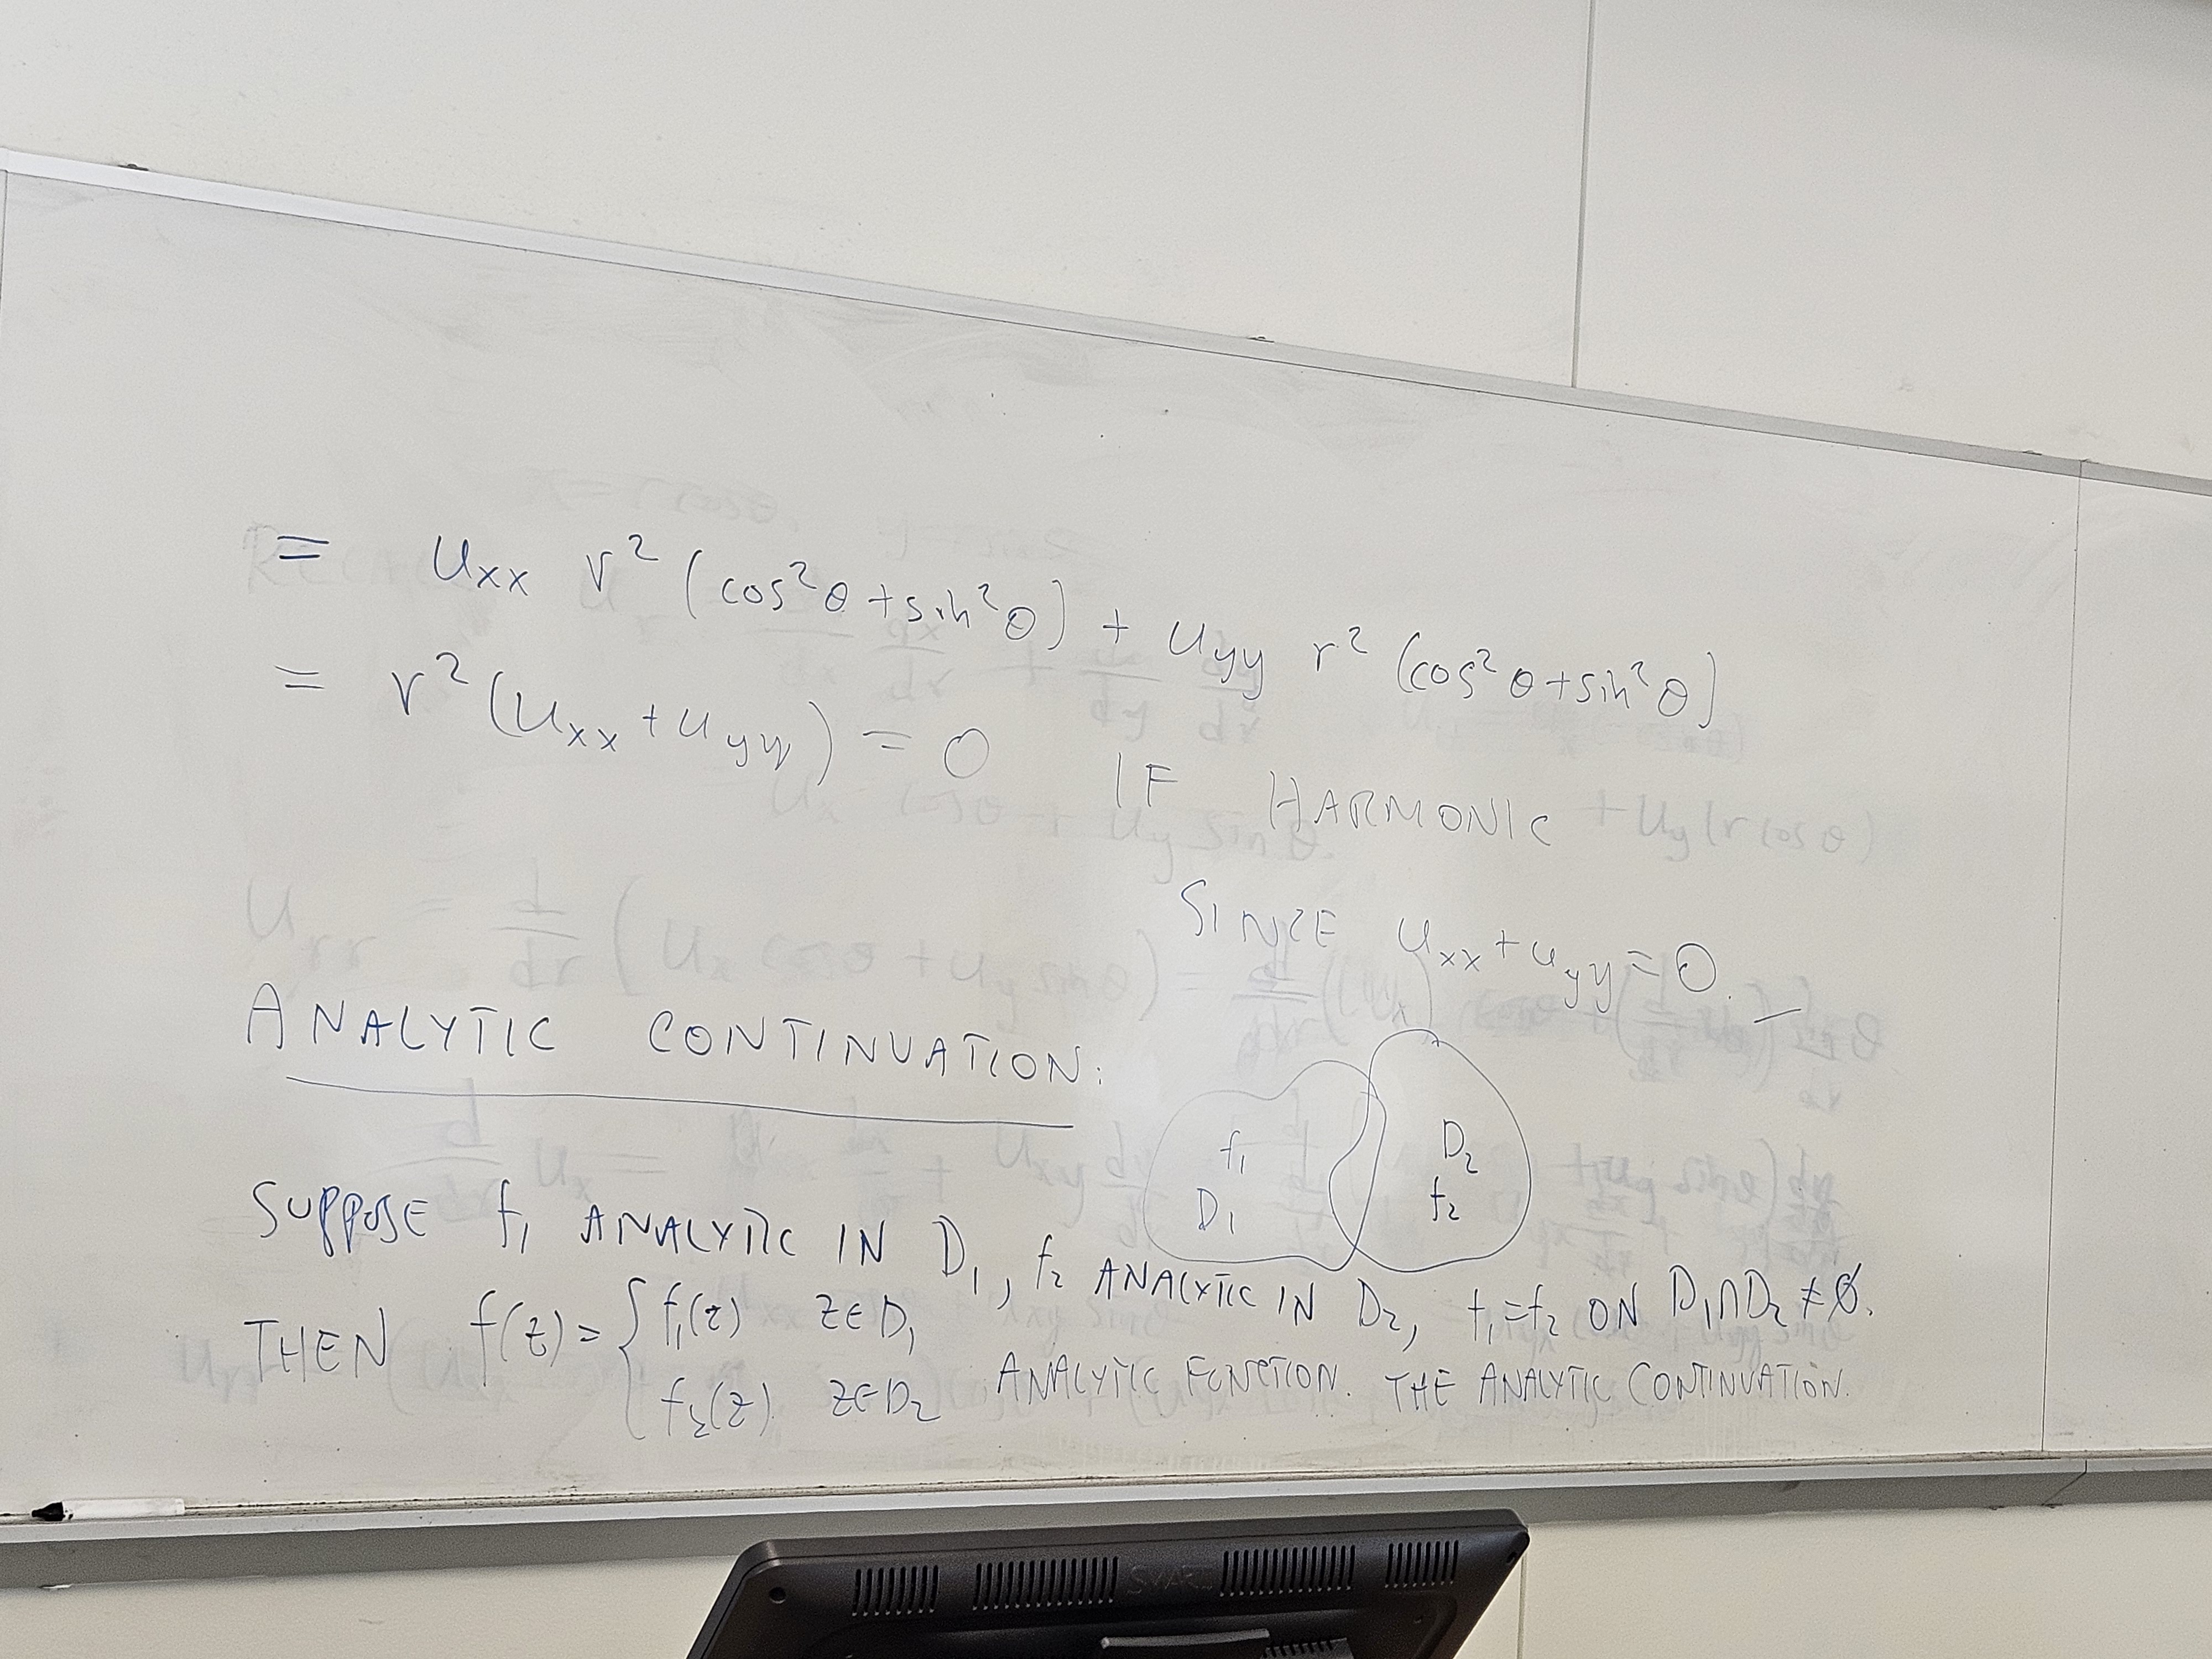 = u_xx r² (cos²θ + sin²θ) + u_yy r² (cos²θ + sin²θ)
= r² (u_xx + u_yy) = 0 IF HARMONIC
SINCE u_xx + u_yy = 0.
ANALYTIC CONTINUATION:
f₁ D₂
D₁ f₂
SUPPOSE f₁ ANALYTIC IN D₁, f₂ ANALYTIC IN D₂, f₁=f₂ ON D₁∩D₂ ≠ ∅.
THEN f(z) = { f₁(z) z∈D₁
f₂(z) z∈D₂ ANALYTIC FUNCTION. THE ANALYTIC CONTINUATION.
SMART